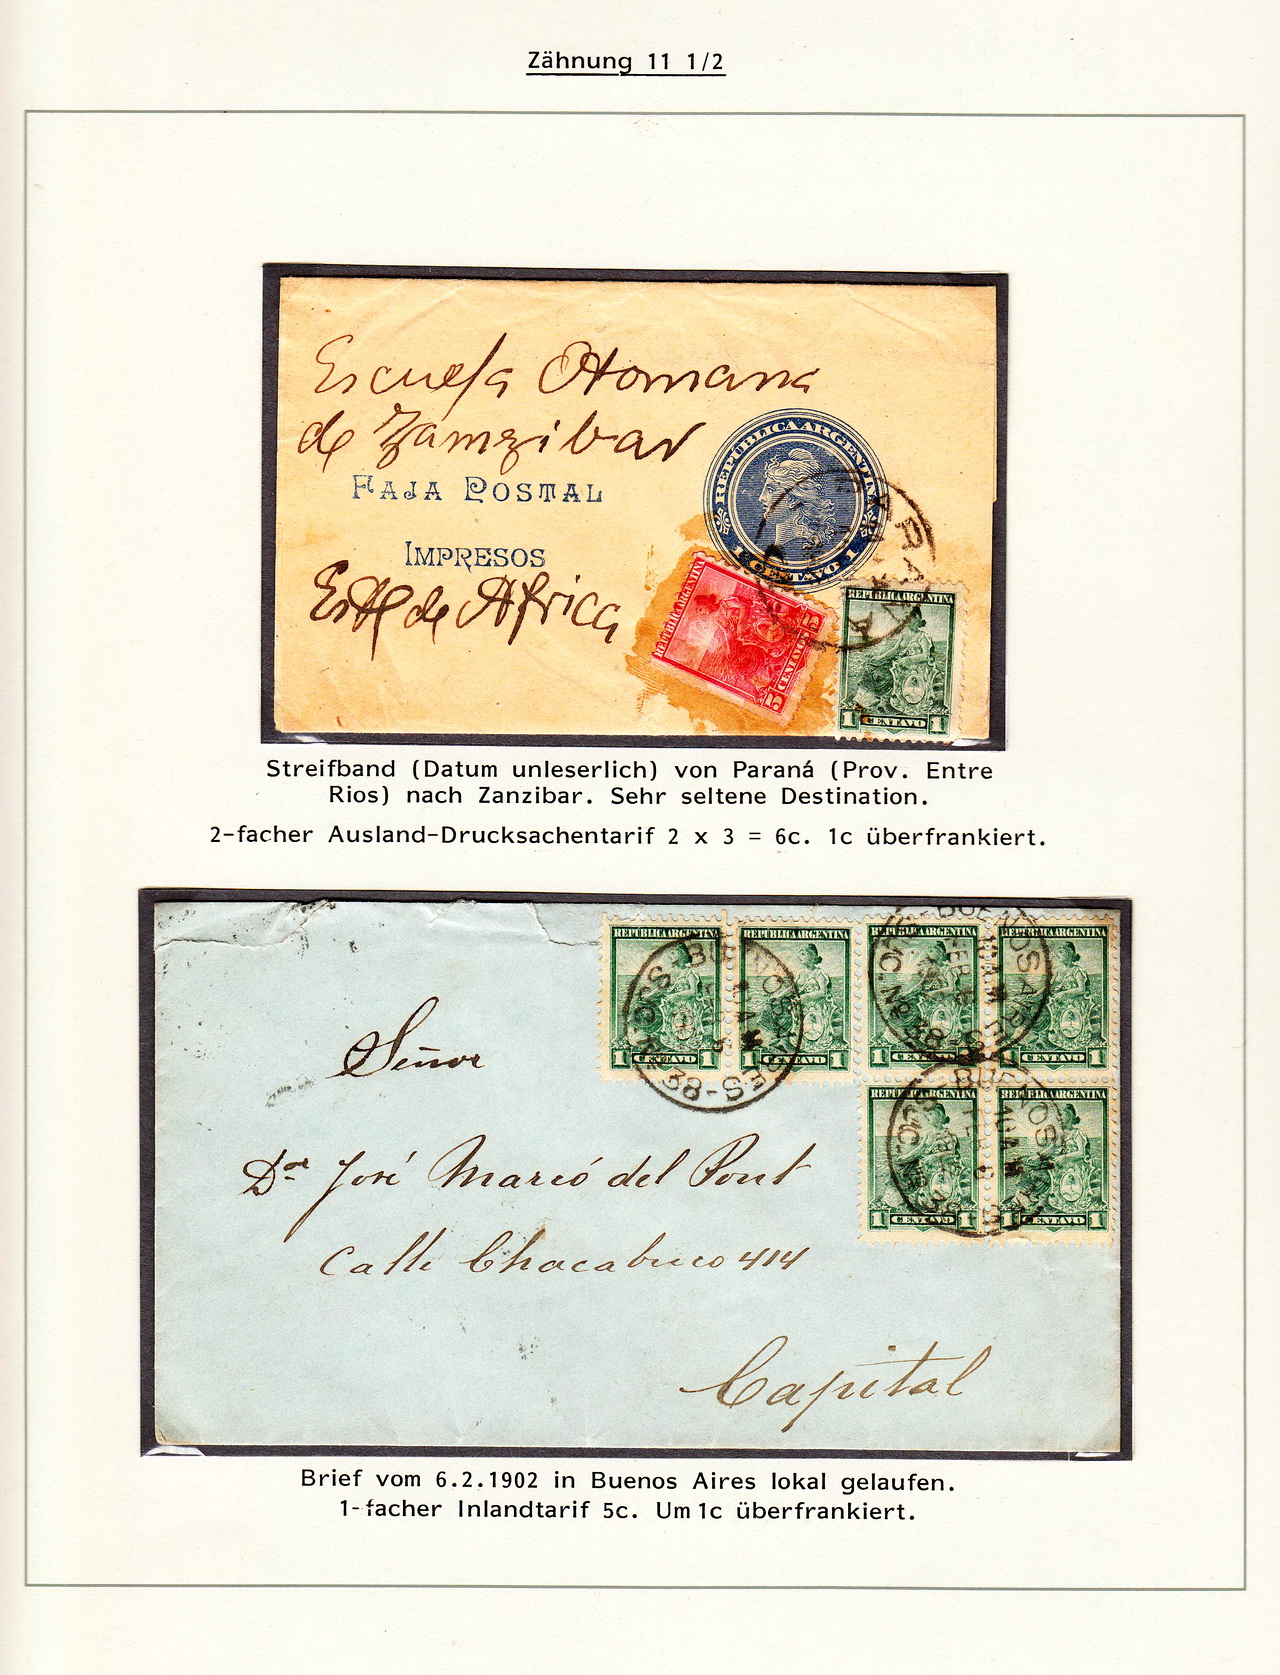 Zähnung 11 1/2
Escuela Otomana
de Zamzibar
FAJA POSTAL
IMPRESOS
Est. de Africa
REPUBLICA ARGENTINA
1 CENTAVO 1
PARANA
REPUBLICA ARGENTINA
5 CENTAVOS 5
REPUBLICA ARGENTINA
1 CENTAVO 1
Streifband (Datum unleserlich) von Paraná (Prov. Entre
Rios) nach Zanzibar. Sehr seltene Destination.
2-facher Ausland-Drucksachentarif 2 x 3 = 6c. 1c überfrankiert.
REPUBLICA ARGENTINA REPUBLICA ARGENTINA REPUBLICA ARGENTINA REPUBLICA ARGENTINA
1 CENTAVO 1 1 CENTAVO 1 1 CENTAVO 1 1 CENTAVO 1
BUENOS AIRES
SUC. Nº 38
REPUBLICA ARGENTINA REPUBLICA ARGENTINA
1 CENTAVO 1 1 CENTAVO 1
Señor
Dor José Marcó del Pont
Calle Chacabuco 414
Capital
Brief vom 6.2.1902 in Buenos Aires lokal gelaufen.
1-facher Inlandtarif 5c. Um 1c überfrankiert.